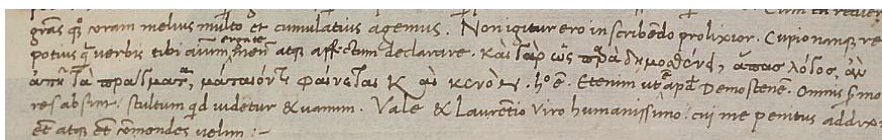 gr̃as qq̃ coram melius multo et cumulatius agemus. Non igitur ero in scribendo prolixior. Cupio nanque re
potius q̃ verbis tibi animum meũ atque affectum declarare. καὶ γὰρ ὡς παρὰ δημοσθένει, ἅπας λόγος, ἂν
ἀπῇ τὰ πράγματα, μάταιόν τι φαίνεται κ αὶ κενόν. h̃ e. Etenim ut apd̃ Demostenẽ. Omnis s̃mo
res absint. stultum qd videtur & vanum. Vale & Laurentio Viro humanissimo. cui me penitus
et atque et r̃omendes velim :-